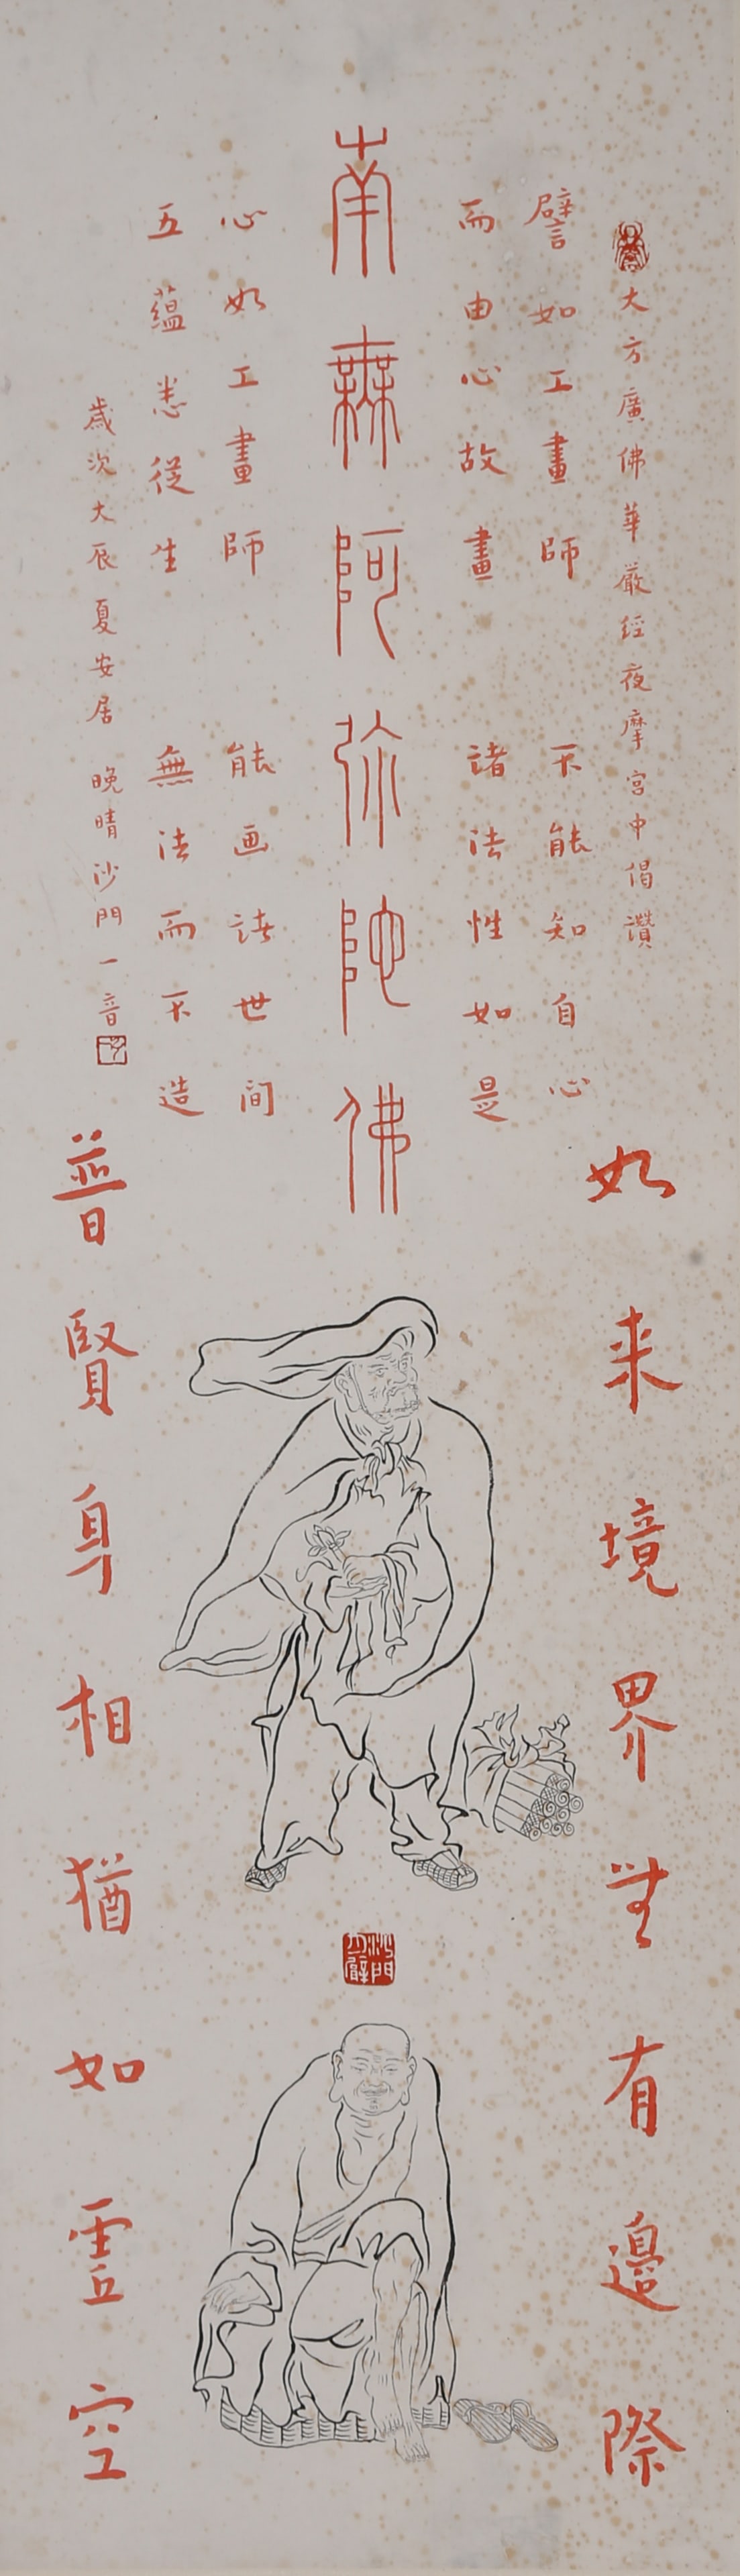 大方廣佛華嚴經夜摩宮中偈讚
譬如工畫師 不能知自心
而由心故畫 諸法性如是
南無阿弥陀佛
心如工畫師 能画諸世間
五蘊悉從生 無法而不造
歲次大辰夏安居 晚晴沙門一音
如来境界無有邊際
普賢身相猶如虛空
沙門